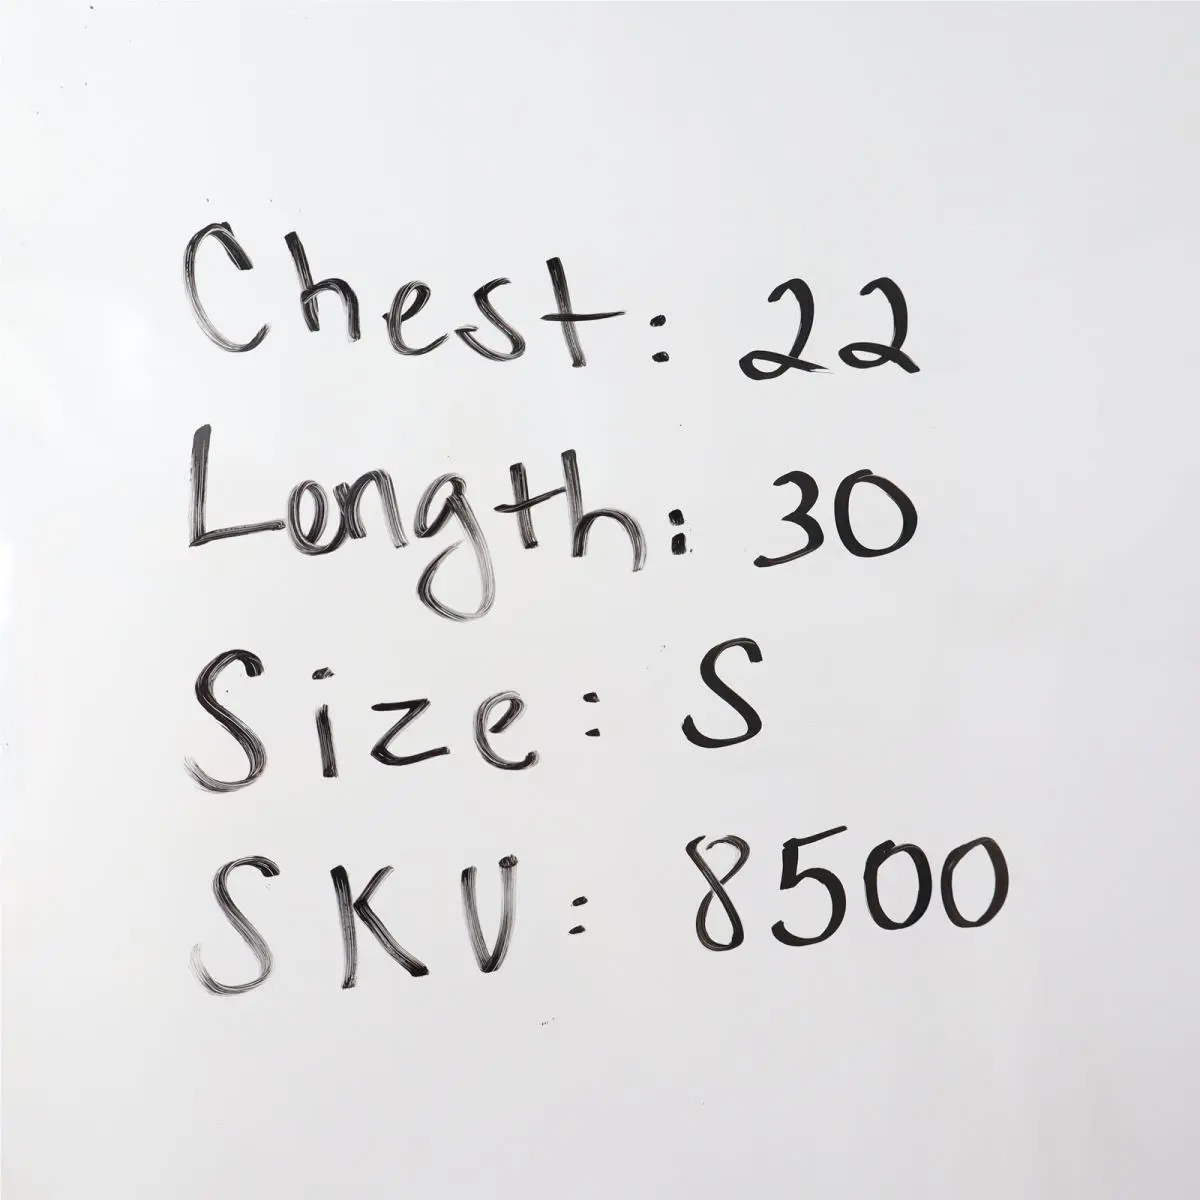 Chest: 22
Length: 30
Size: S
SKU: 8500